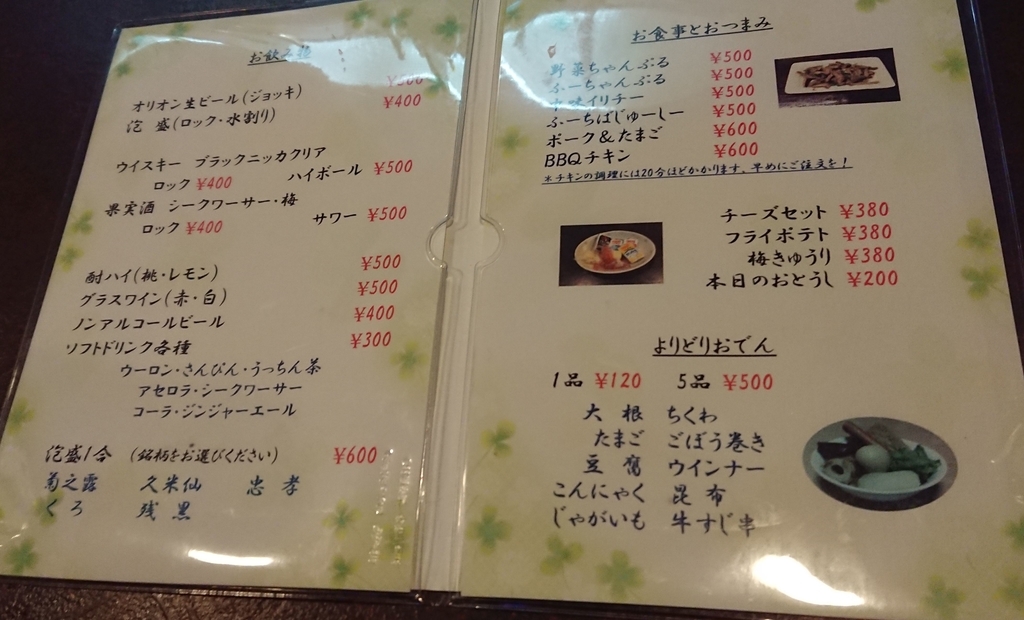 お飲み物
オリオン生ビール(ジョッキ) ¥500
泡 盛(ロック・水割り) ¥400
ウイスキー ブラックニッカクリア
ロック ¥400 ハイボール ¥500
果実酒 シークワーサー・梅
ロック ¥400 サワー ¥500
酎ハイ(桃・レモン) ¥500
グラスワイン(赤・白) ¥500
ノンアルコールビール ¥400
ソフトドリンク各種 ¥300
ウーロン・さんぴん・うっちん茶
アセロラ・シークワーサー
コーラ・ジンジャーエール
泡盛1合 (銘柄をお選びください) ¥600
菊之露 久米仙 忠 孝
くろ 残 黒
お食事とおつまみ
野菜ちゃんぷる ¥500
ふーちゃんぷる ¥500
中味イリチー ¥500
ふーちばじゅーしー ¥500
ポーク&たまご ¥600
BBQチキン ¥600
*チキンの調理には20分ほどかかります、早めにご注文を!
チーズセット ¥380
フライポテト ¥380
梅きゅうり ¥380
本日のおとうし ¥200
よりどりおでん
1品 ¥120 5品 ¥500
大 根 ちくわ
たまご ごぼう巻き
豆 腐 ウインナー
こんにゃく 昆 布
じゃがいも 牛すじ串